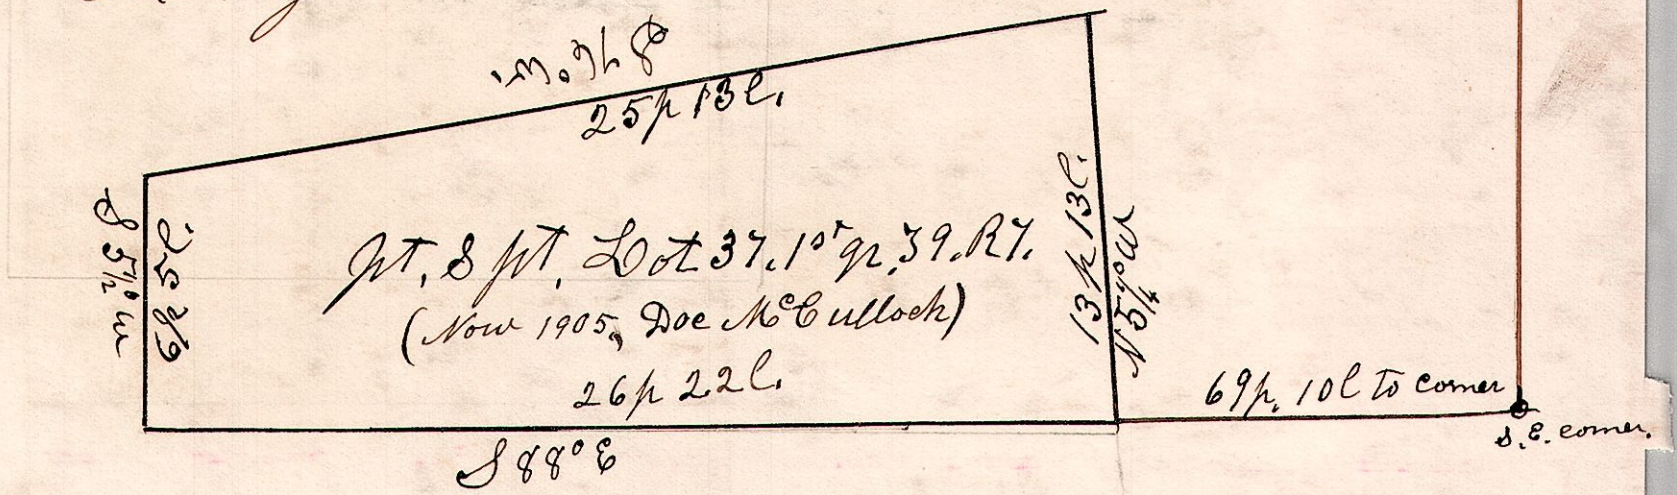 25p 13l.
S 5½° W
6p 5l.
pt. S pt. Lot 37. 1st gr. 39. R7.
(Now 1905, Doc McCulloch)
13p 13l.
N 5¼° W
26p 22l.
S 88° E
69p. 10l to corner
S.E. corner.